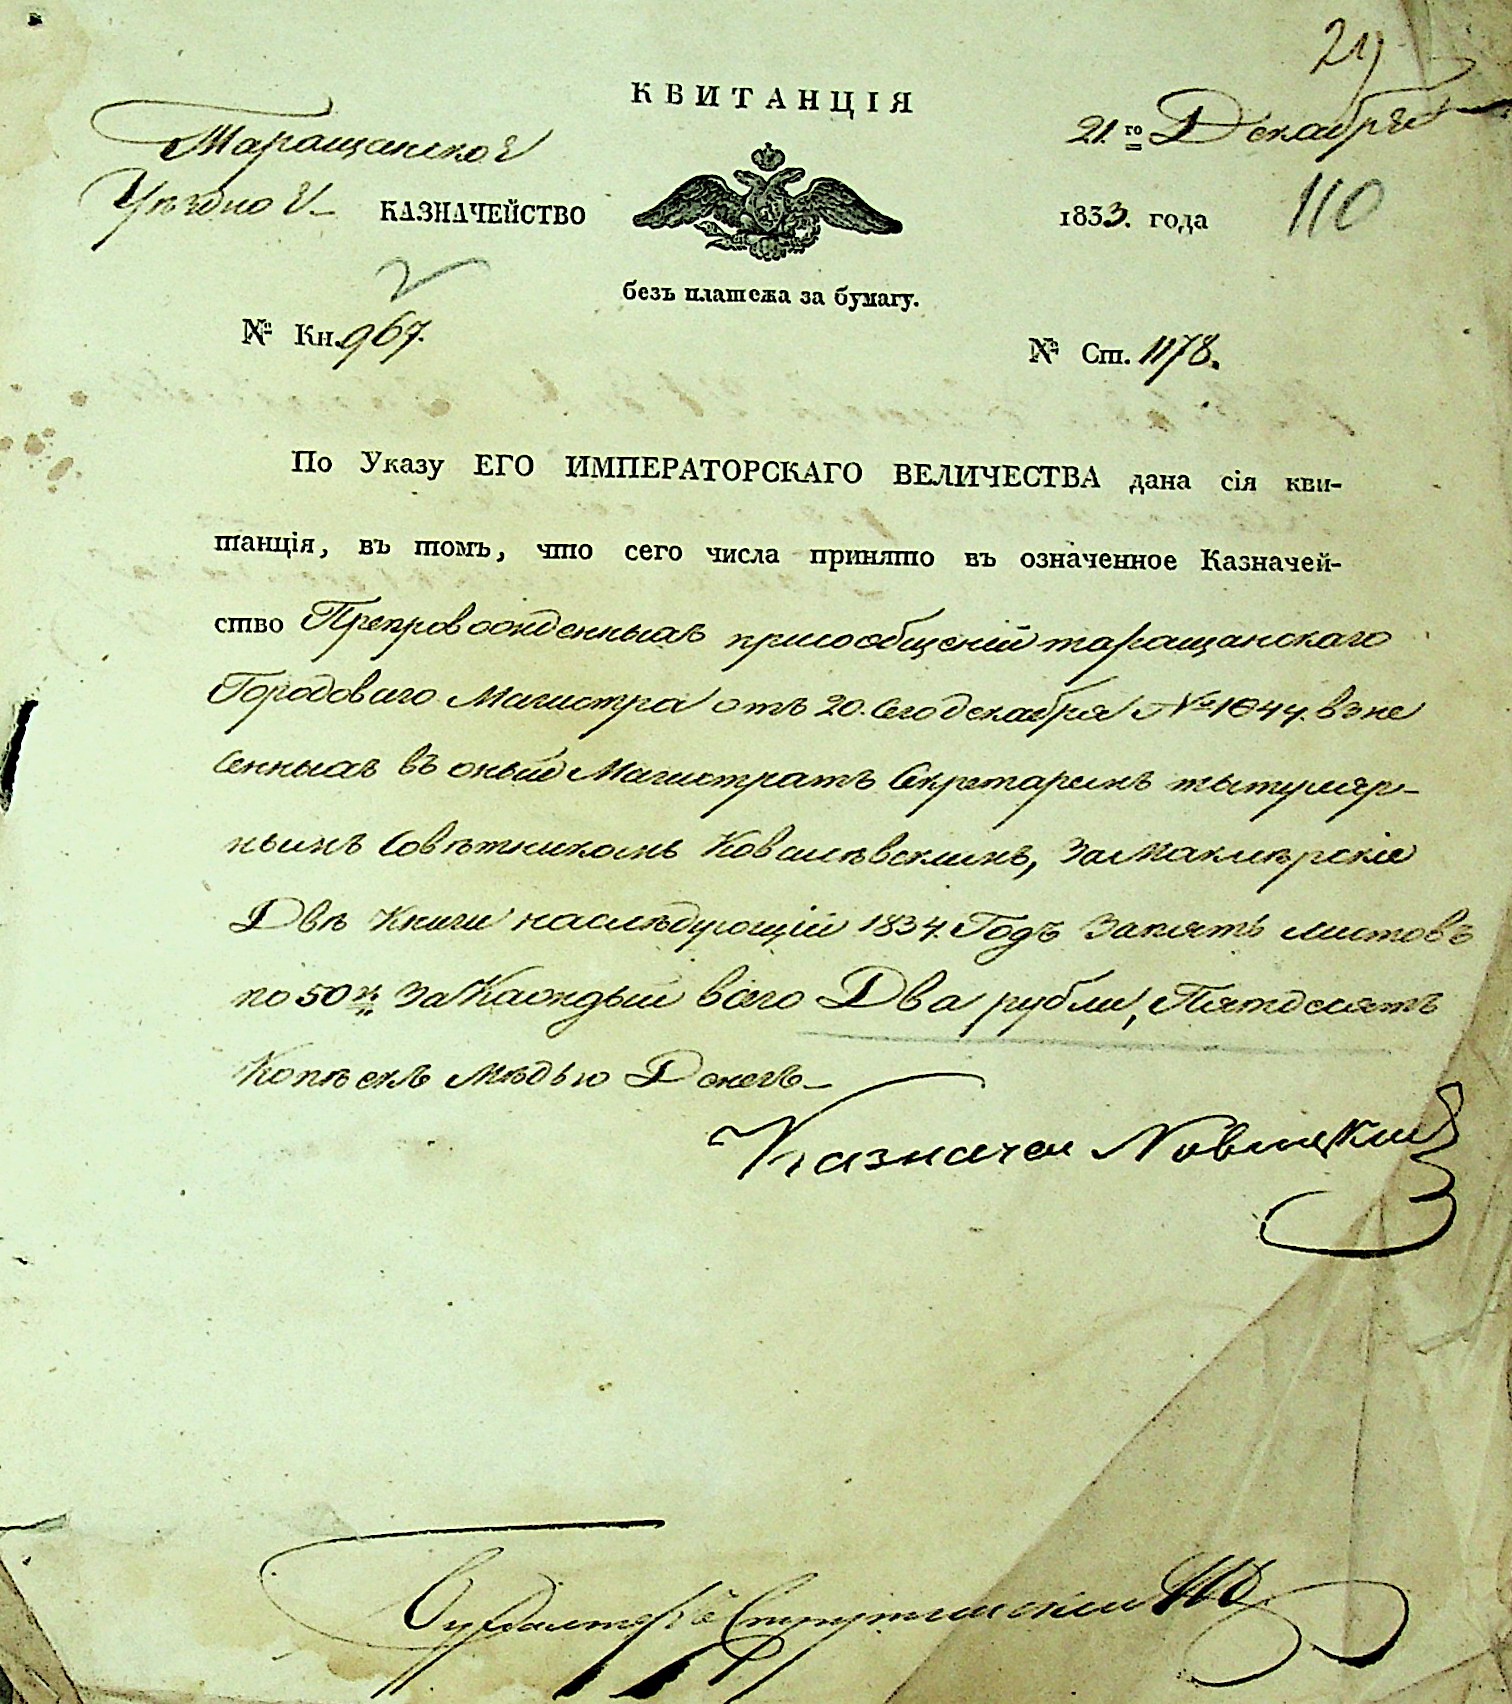 29
КВИТАНЦІЯ
21.го Декабря
Таращанское
Уѣздное КАЗНАЧЕЙСТВО
1833. года
110
безъ платежа за бумагу.
№ Кн. 967.
№ Ст. 1178.
По Указу ЕГО ИМПЕРАТОРСКАГО ВЕЛИЧЕСТВА дана сія кви-
танція, въ томъ, что сего числа принято въ означенное Казначей-
ство Препровожденныхъ присообщеній таращанскаго
Городоваго Магистра отъ 20. сего декабря № 1644. взне
сенныхъ въ оный Магистратъ Секретаремъ тытуляр-
нымъ Совѣтникомъ Ковалѣвскимъ, за Маклѣрскіе
Двѣ Книги наслѣдующій 1834. Годъ Запять листовъ
по 50 к. за Каждый всего Два рубли, Пятдесятъ
Копѣекъ Мѣдью Денегъ
Казначеи Новицкий
Бухгалтеръ